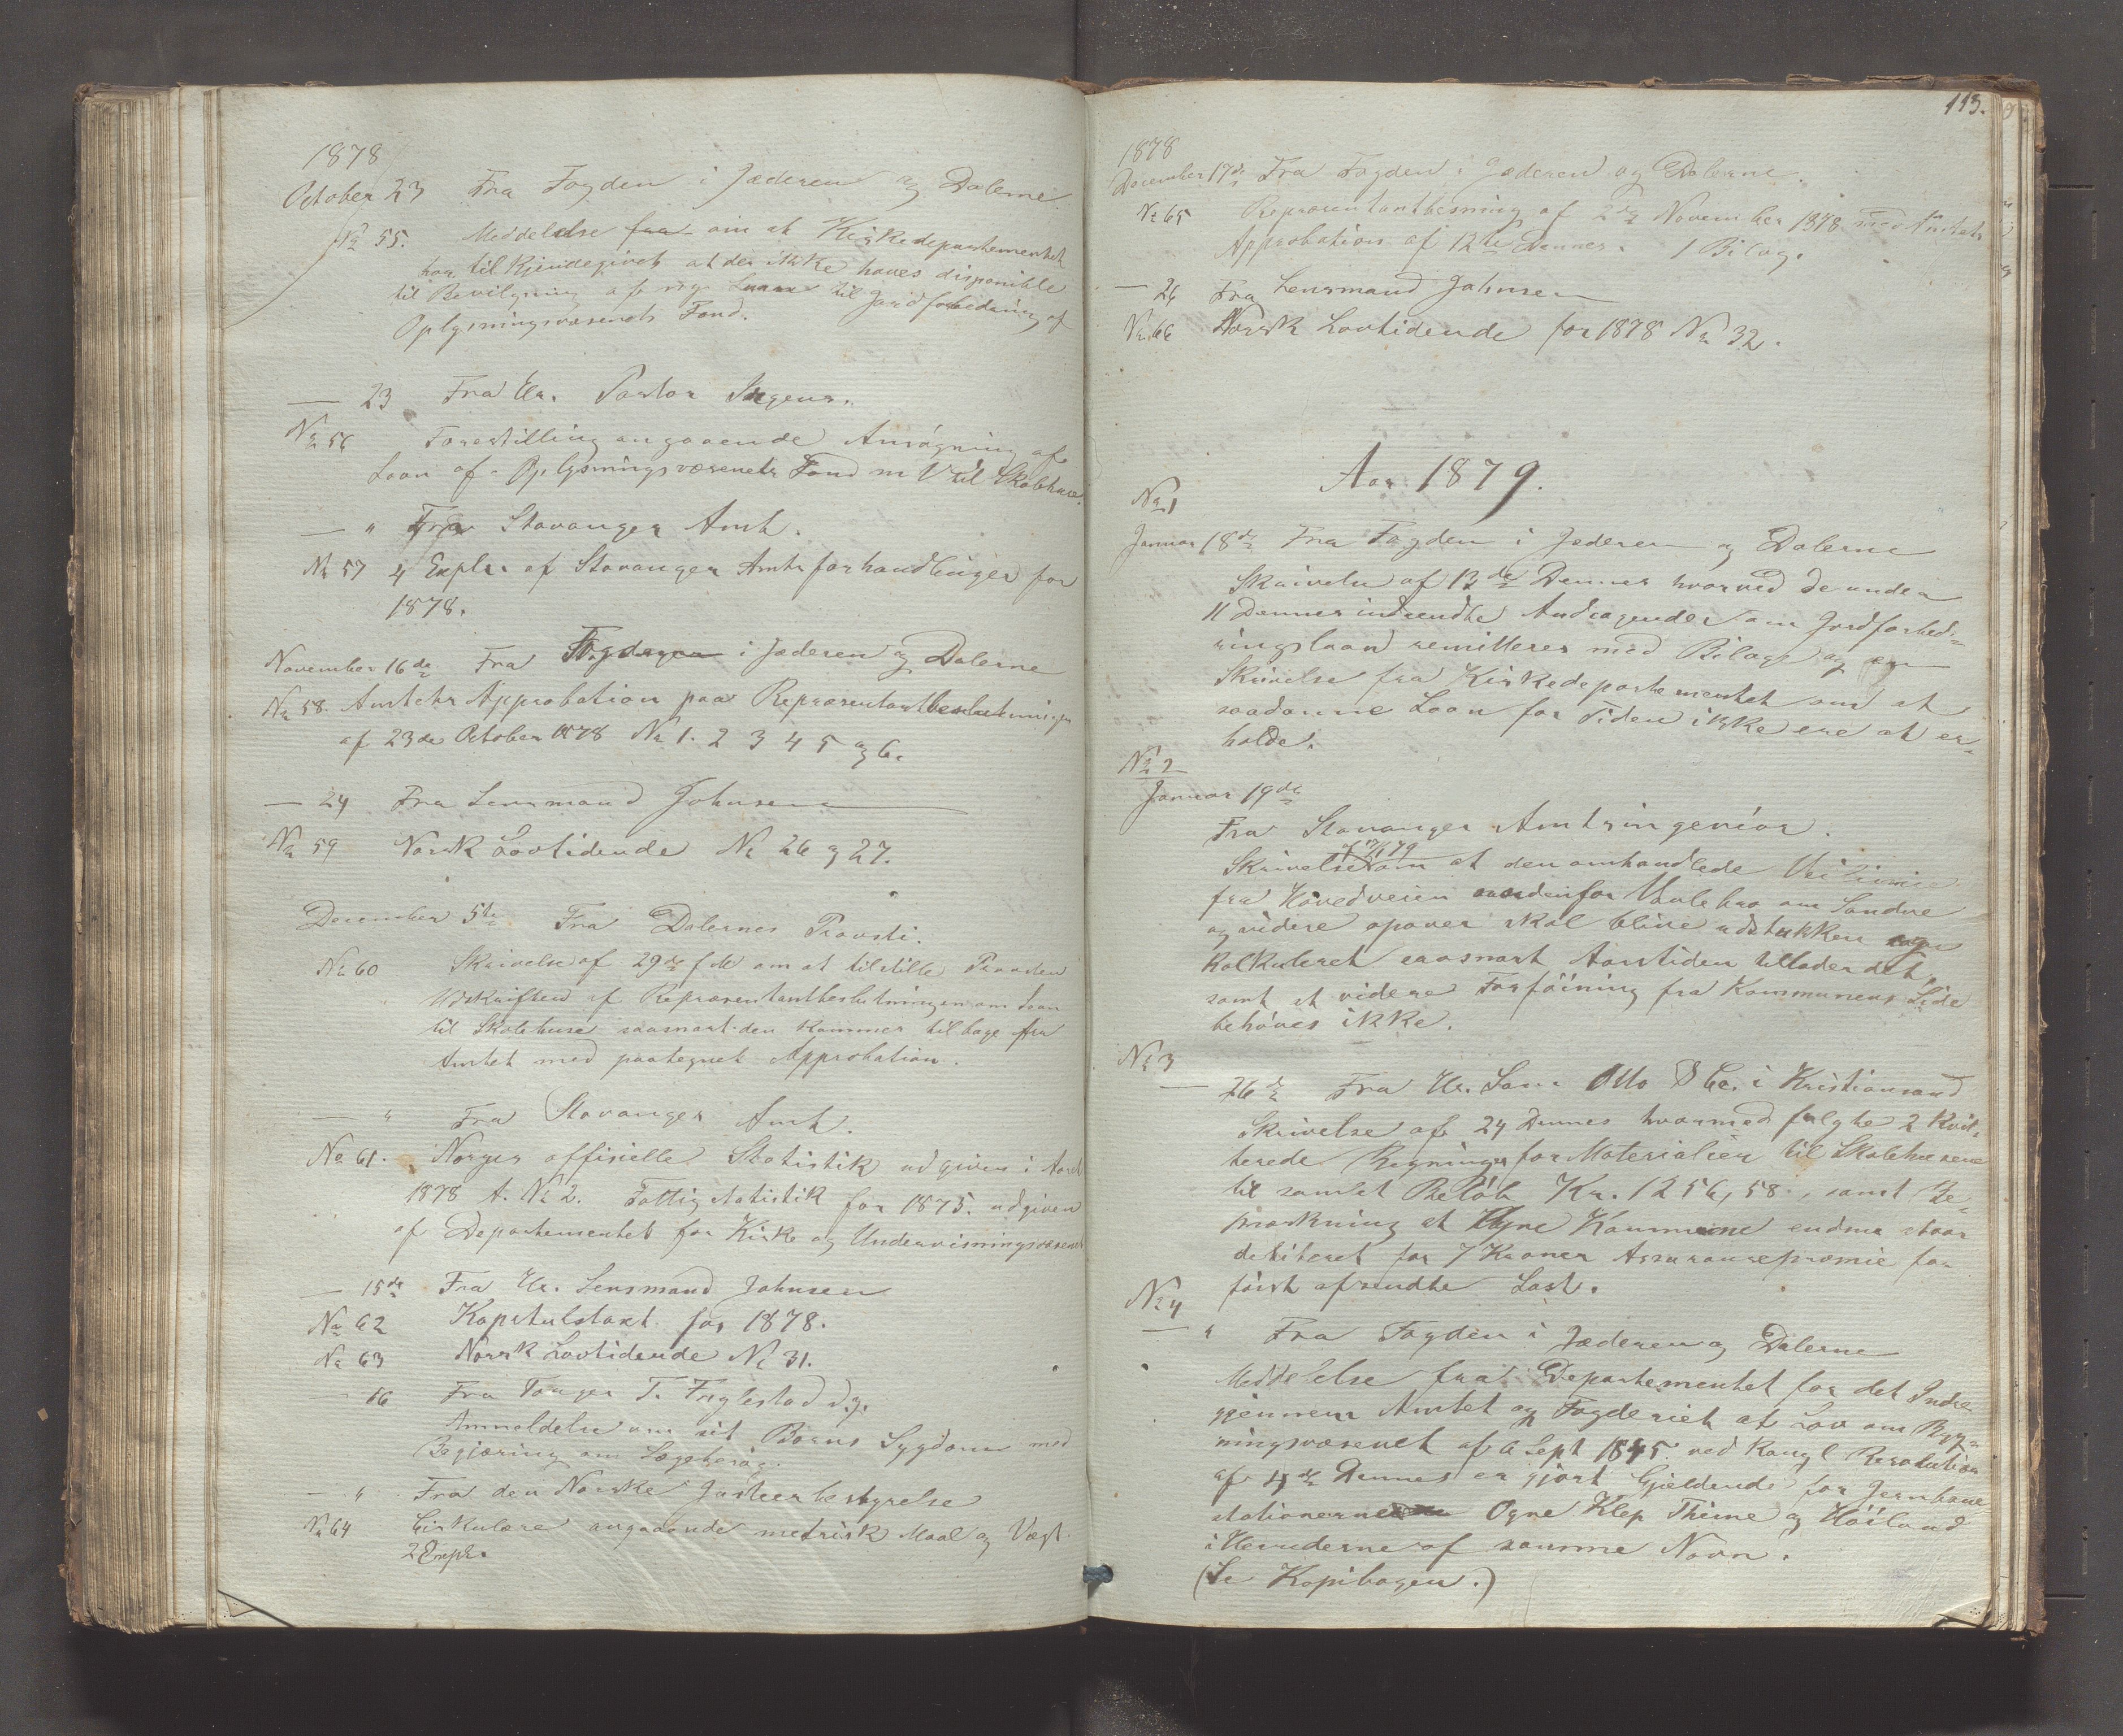 1878
October 23 Fra Fogden i Jæderen og Dalerne.
No 55. Meddelelse fra om at Kirkedepartementet
har tilkjendegivet at der ikke haves disponible
til Bevilgning af nye Laane til Jordforbedring af
Oplysningsvæsenets Fond.
— 23 Fra Hr. Pastor
No 56 Forestilling angaaende Ansøgning af
Laan af Oplysningsvæsenets Fond m V til Skolehuse.
— " Fra Stavanger Amt.
No 57 4 Explr. af Stavanger Amts forhandlinger for
1878.
November 16de Fra Fogderiet i Jæderen og Dalerne
No 58. Amtets Approbation paa Repræsentantbeslutninger
af 23de October 1878 No 1. 2 3 4 5 og 6.
— 24 Fra Lensmand Johnsen
No 59 Norsk Lovtidende No 26 og 27.
December 5te Fra Dalernes Provsti.
No 60 Skrivelse af 29de f M om at tilstille Provsten
Udskriften af Repræsentantbeslutningen om Laan
til Skolehuse saasnart den kommer tilbage fra
Amtet med paategnet Approbation.
— " Fra Stavanger Amt.
No 61. Norges officielle Statistik udgiven i Aaret
1878 A. No 2. Fattigstatistik for 1875. udgiven
af Departementet for Kirke og Undervisningsvæsenet
— 15de Fra Hr. Lensmand Johnsen
No 62 Kapitulstaxt for 1878.
No 63 Norsk Lovtidende No 31.
— 16 Fra Tønges T. Fuglestad d.y.
Anmeldelse om sit Barns Sygdom med
Begjæring om Lægebesøg.
— " Fra den Norske Justeerbestyrelse
No 64 Cirkulære angaaende metrisk Maal og Vægt.
2 Expl.
113.
1878
December 17de Fra Fogden i Jæderen og Dalerne.
No 65 Repræsentantbesning af 2den November 1878 med Amtets
Approbation af 12te Dennes. 1 Bilag.
— 26 Fra Lensmand Johnsen
No 66 Norsk Lovtidende for 1878 No 32.
Aar 1879.
No 1
Januar 18de Fra Fogden i Jæderen og Dalerne
Skrivelse af 13de Dennes hvorved de under
11 Dennes indsendte Andragender om Jordforbed-
ringslaan remitteres med Bilage og en
Skrivelse fra Kirkedepartementet om at
saadanne Laan for Tiden ikke ere at er-
holde.
No 2
Januar 19de
Fra Stavanger Amtsingeniør.
Skrivelse af 17/1 79 om at den omhandlede Veilinie
fra Hovedveien nordenfor Vaulebro om Landre
og videre opover skal blive udstukken og
Kalkuleret saasnart Aarstiden tillader det,
samt at videre Forføining fra Kommunens Side
behøves ikke.
No 3
— 26de Fra Hr. Sam. Otto & Co. i Kristiansand
Skrivelse af 24 Dennes hvormed fulgte 2 Kvit-
terede Regninger for Materialier til Skolehusene
til samlet Beløb Kr. 1256,58., samt Be-
mærkning at Ogne Kommune endnu staar
debiteret for 7 Kroner Assurancepræmie for
først afsendte Last.
No 4
— " Fra Fogden i Jæderen og Dalerne
Meddelelse fra Departementet for det Indre
gjennem Amtet og Fogderiet at Lov om Byg-
ningsvæsenet af 6 Sept 1845 ved Kongl Resolution
af 4de Dennes er gjort Gjeldende for Jernbane-
stationerne Ogne Klep Thime og Høiland
i Herrederne af samme Navn.
(Se Kopibogen.)